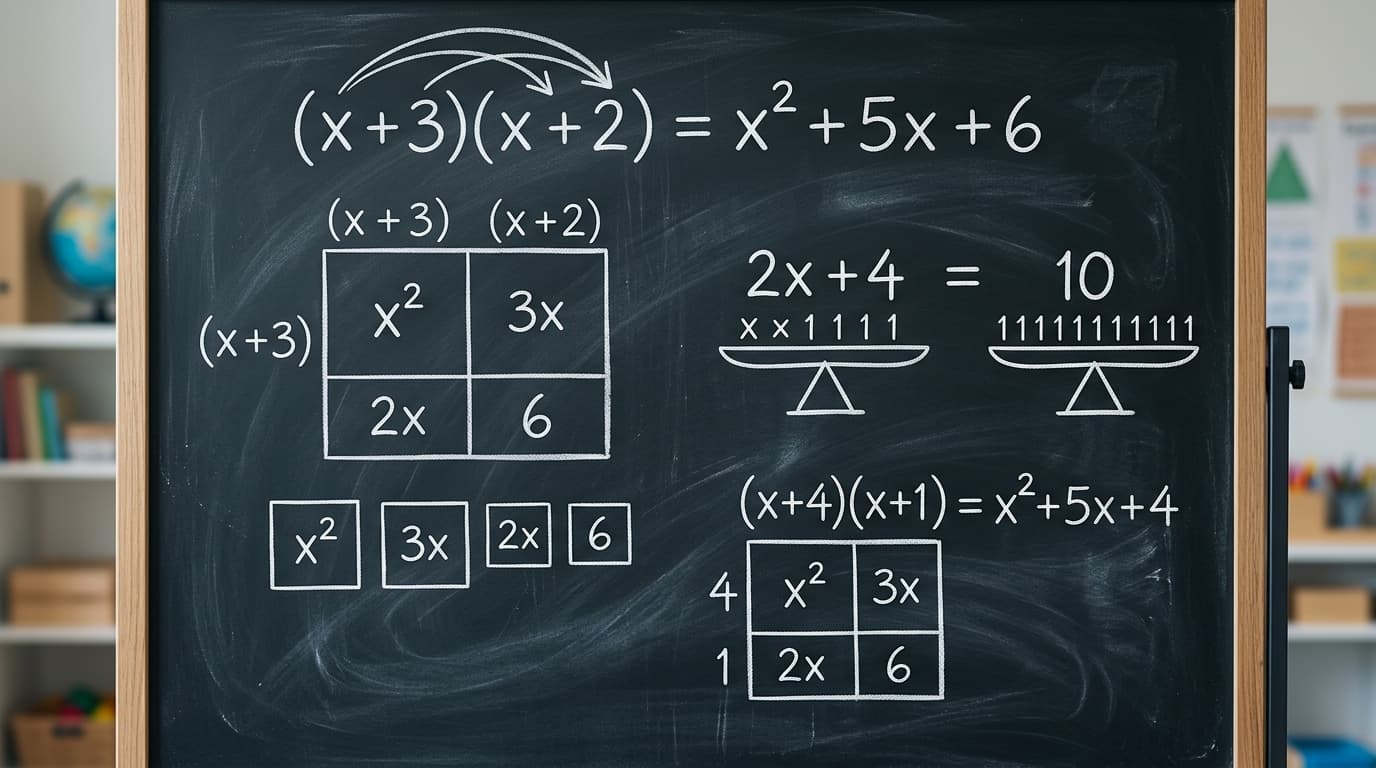 (x+3)(x+2) = x²+5x+6
(x+3) (x+2)
(x+3) x² 3x
2x 6
x² 3x 2x 6
2x+4 = 10
x x 1 1 1 1 11111111111
(x+4)(x+1) = x²+5x+4
4 x² 3x
1 2x 6